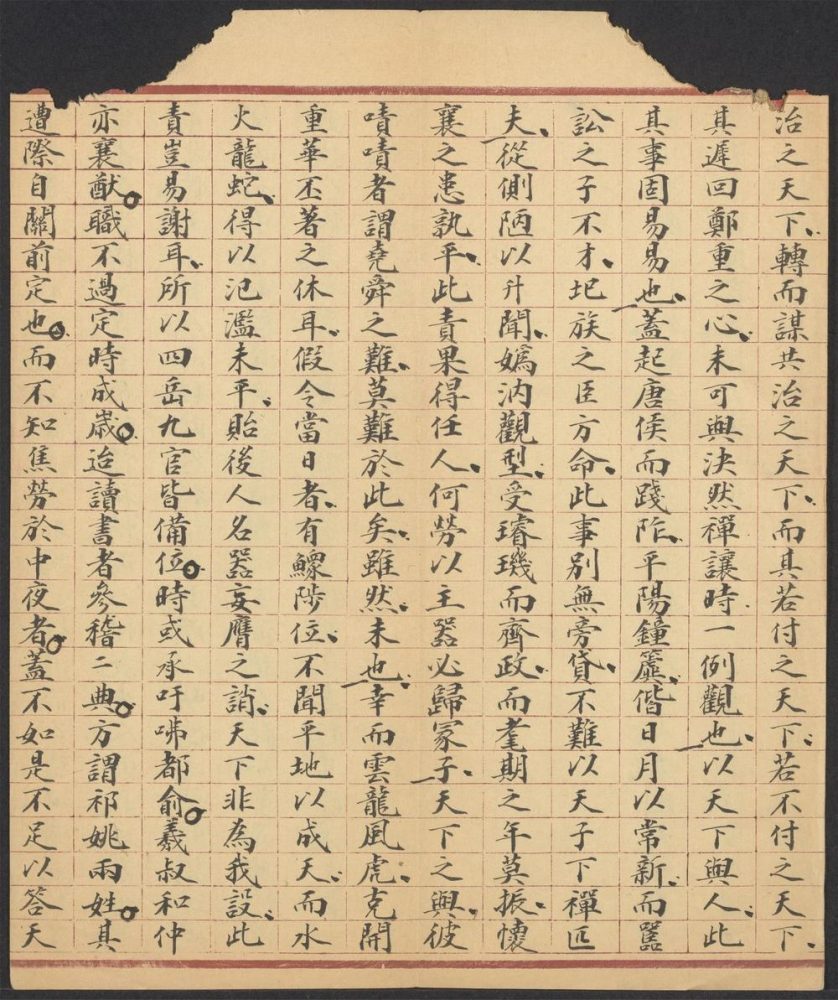 治之天下轉而謀共治之天下而其若付之天下若不付之天下
其遲回鄭重之心未可與決然禪讓時一例觀也以天下與人此
其事固易易也蓋起唐侯而踐阼平陽鐘簴偕日月以常新而嚚
訟之子不才圮族之臣方命此事別無旁貸不難以天子下禪匹
夫從側陋以升聞媯汭觀型受璿璣而齊政而耄期之年莫振懷
襄之患孰平此責果得任人何勞以主器必歸冢子天下之與彼
嘖嘖者謂堯舜之難莫難於此矣雖然未也幸而雲龍風虎克開
重華丕著之休耳假令當日者有鰥陟位不聞平地以成天而水
火龍蛇得以氾濫未平貽後人名器妄膺之誚天下非為我設此
責豈易謝耳所以四岳九官皆備位時或承吁咈都俞羲叔和仲
亦襄猷職不過定時成歲迨讀書者參稽二典方謂祁姚兩姓其
遭際自關前定也而不知焦勞於中夜者蓋不如是不足以答天